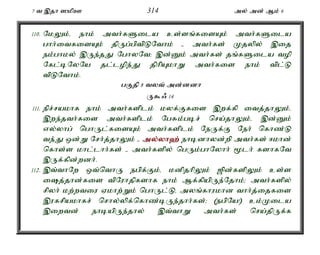 7 வ இதா ஸமிஊ 314 அல் அன் ஆம் 6
110. மேலும், நாம் அவர்களுடைய உள்ளங்களையும் அவர்களுடைய
பார்வைகளையும் திருப்பிவிடுவோம் - அவர்கள் முதலில் இதை
நம்பாமல் இருந்தது போலவே; இன்னும் அவர்கள் தங்களுடைய வழி
கேட்டிலேயே தட்டழிந்து திரியுமாறு அவர்களை நாம் விட்டு
விடுவோம்.
பகுதி 8 வலவ் அன்னனா
111. நிச்சயமாக நாம் அவர்களிடம் மலக்குகளை இறக்கி வைத்தாலும்,
இறந்தவர்களை அவர்களிடம் பேசும்படிச் செய்தாலும், இன்னும்
எல்லாப் பொருட்களையும் அவர்களிடம் நேருக்கு நேர் கொண்டு
வந்து ஒன்று சேர்த்தாலும் - அல்லாஹ் நாடினாலன்றி அவர்கள் ஈமான்
கொள்ள மாட்டார்கள் - அவர்களில் பெரும்பாலோர் மூடர் களாகவே
இருக்கின்றனர்.
112. இவ்வாறே ஒவ்வொரு நபிக்கும், மனிதரிலும் ஜின்களிலும் உள்ள
ஷைத்தான்களை விரோதிகளாக நாம் ஆக்கியிருந்தோம்; அவர்களில்
சிலர் மற்றவரை ஏமாற்றும் பொருட்டு, அலங்காரமான வார்த்தைகளை
இரகசியமாகச் சொல்லிக்கொண்டிருந்தார்கள்; (நபியே!) உம்முடைய
இறைவன் நாடியிருந்தால் இவ்வாறு அவர்கள் செய்திருக்க